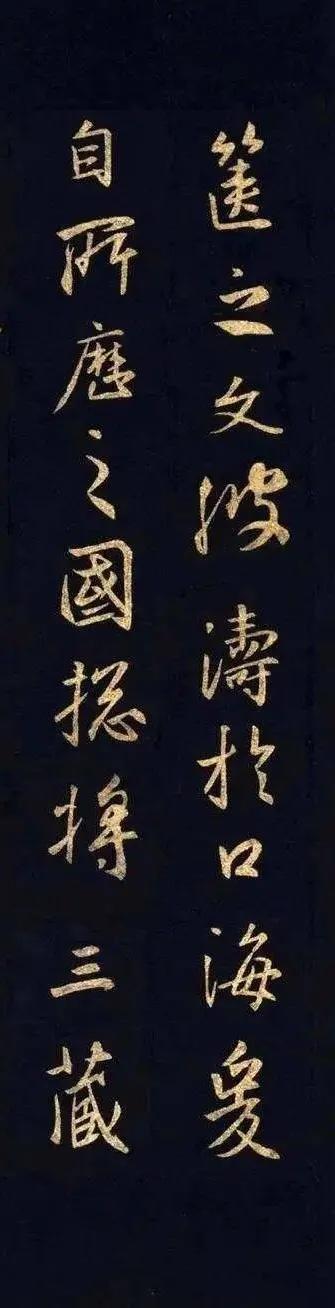 箧之文波濤於口海爰
自所歷之國揔將三藏